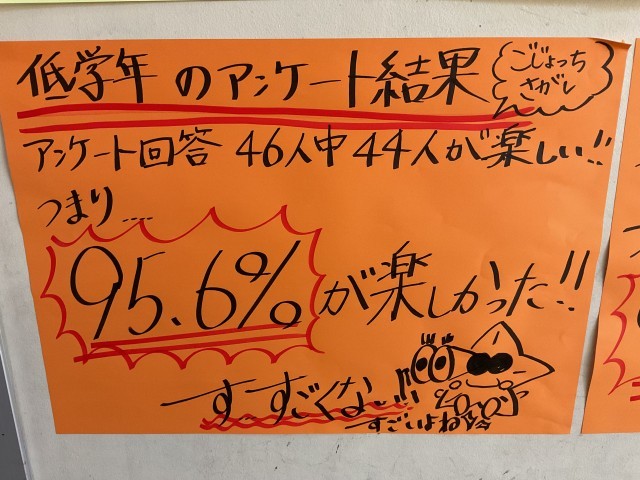 低学年のアンケート結果
ごじょっち
さがし
アンケート回答 46人中44人が楽しい!!
つまり....
95.6%が楽しかった!!
すーすごくない!!
すごいよね